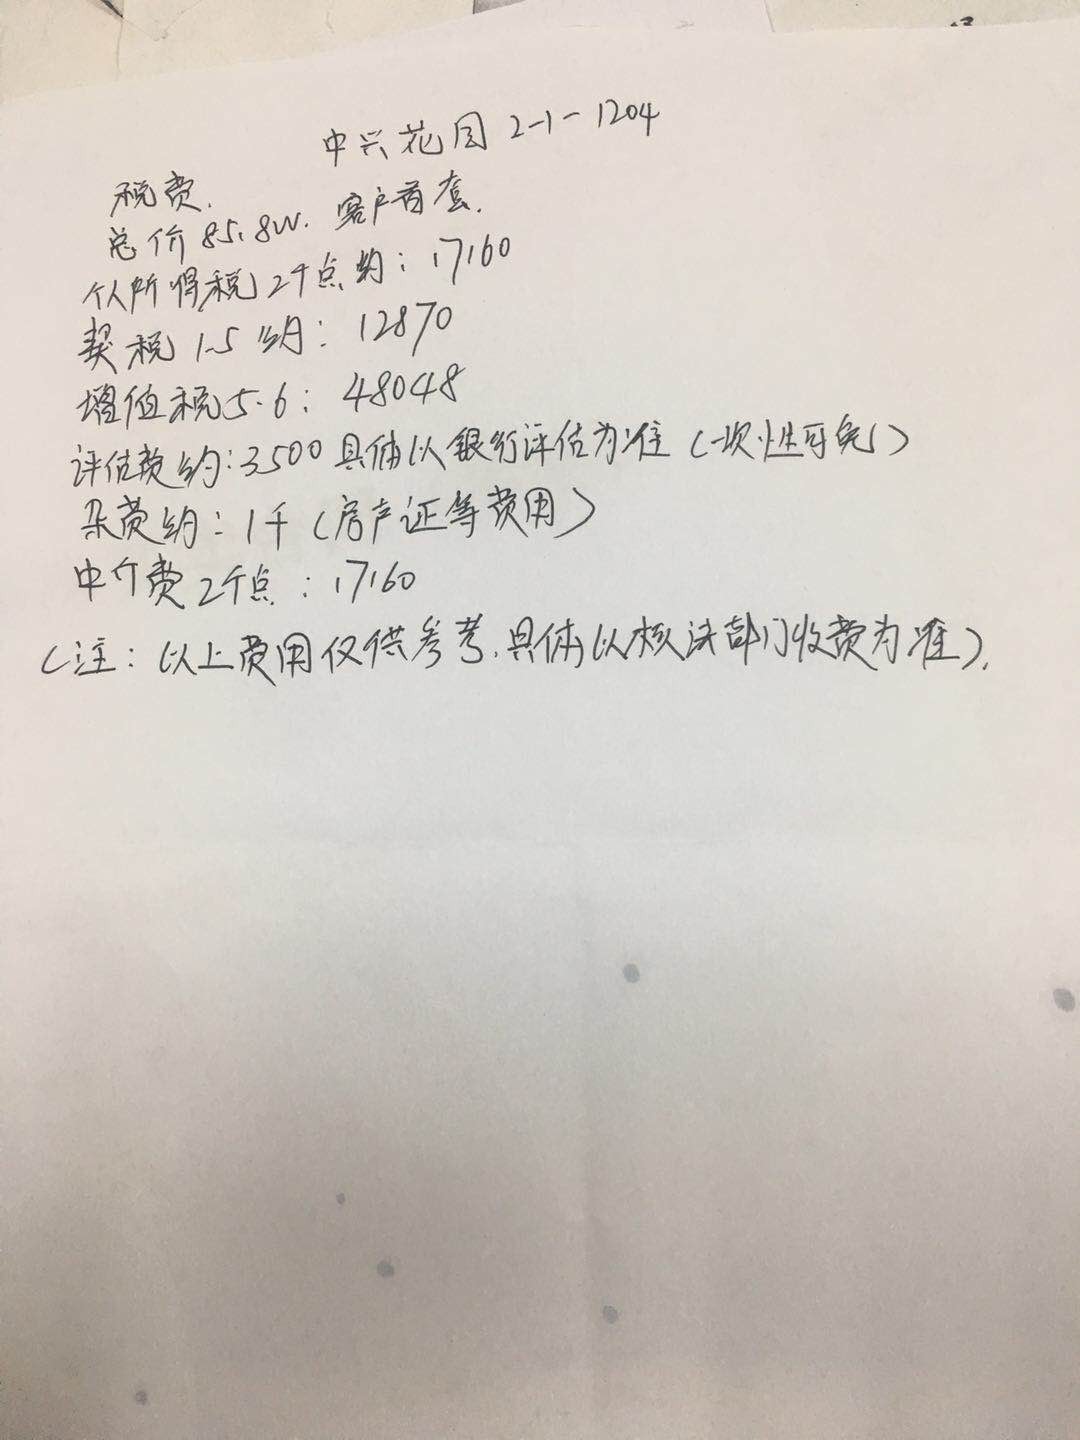 中兴花园 2-1-1204
税费.
总价 85.8W. 客户首套.
个人所得税 2个点约: 17160
契税 1.5 约: 12870
增值税 5.6: 48048
评估费约: 3500 具体以银行评估为准 (一次性可免)
杂费约: 1千 (房产证等费用)
中介费 2个点: 17160
(注: 以上费用仅供参考. 具体以核决部门收费为准).